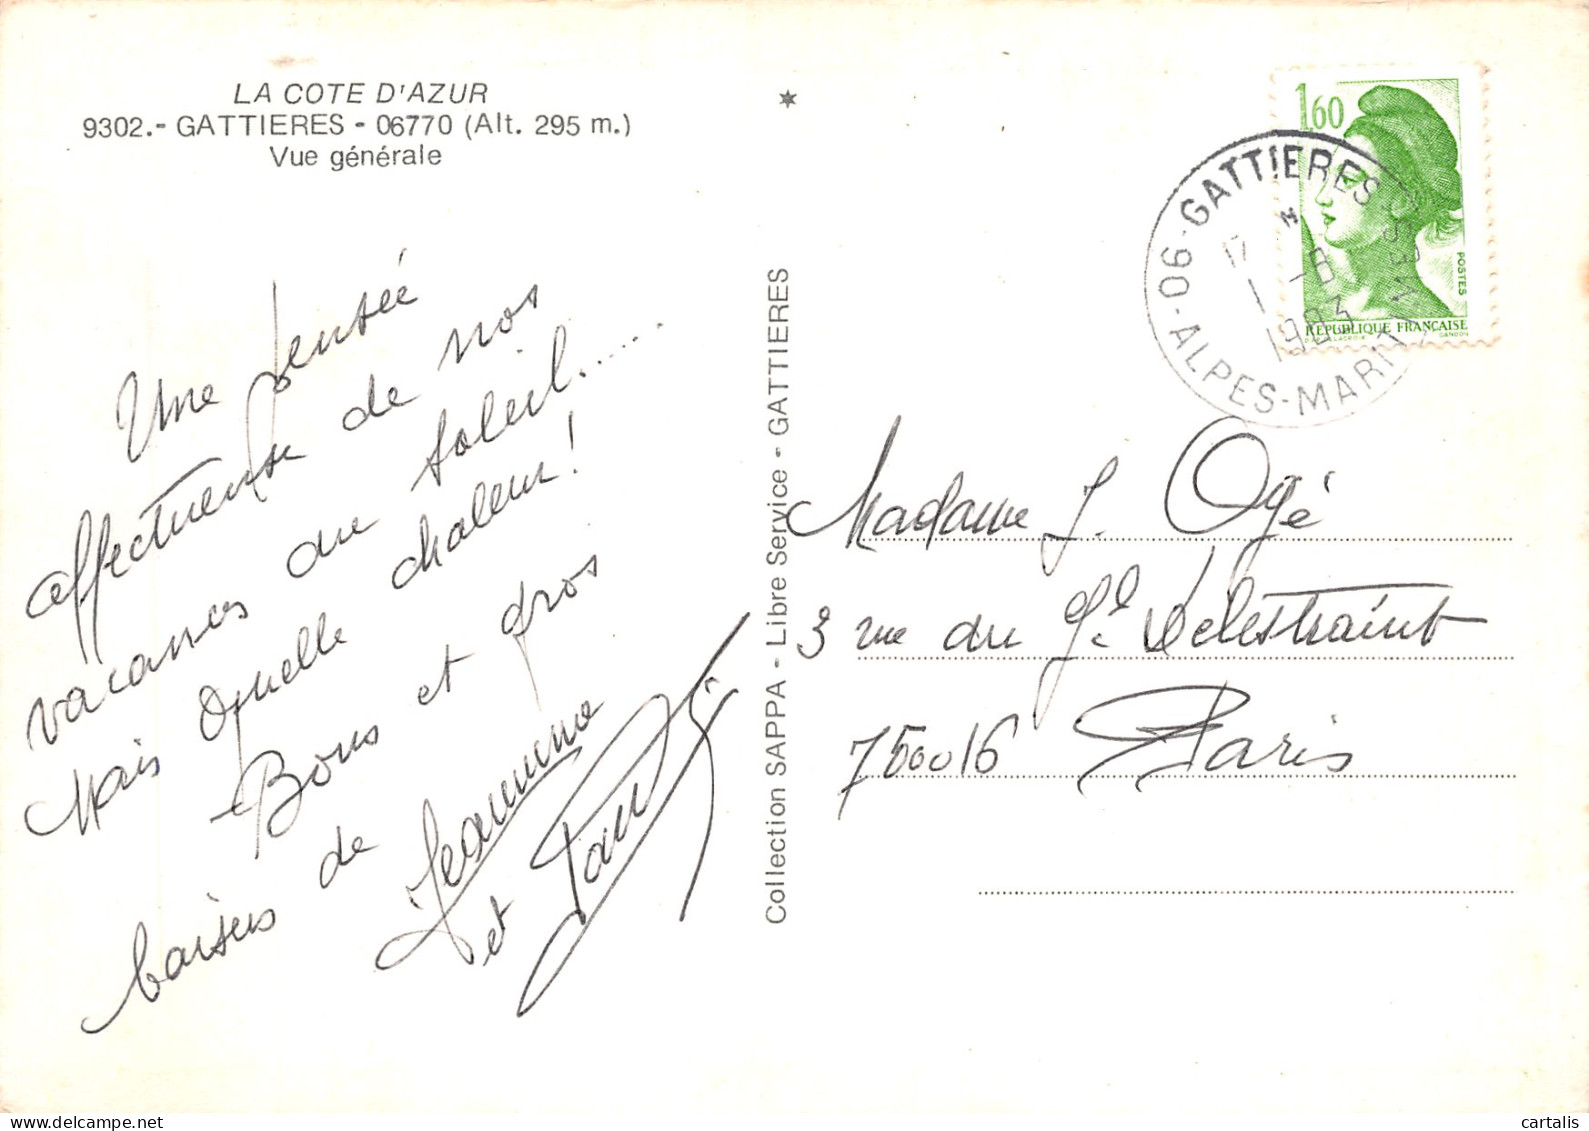 LA COTE D'AZUR
9302.- GATTIERES - 06770 (Alt. 295 m.)
Vue générale
Une pensée
affectueuse de nos
vacances au soleil.....
Mais quelle chaleur!
Bons et gros
baisers de Jeannine
et Paul
Collection SAPPA - Libre Service - GATTIERES
1,60
POSTES
RÉPUBLIQUE FRANÇAISE
GANDON
06-GATTIERES
17 H
1 -8
1983
ALPES-MARITIMES
Madame J. Ogé
3 rue du Gl Delestraint
75016 Paris
cartalis